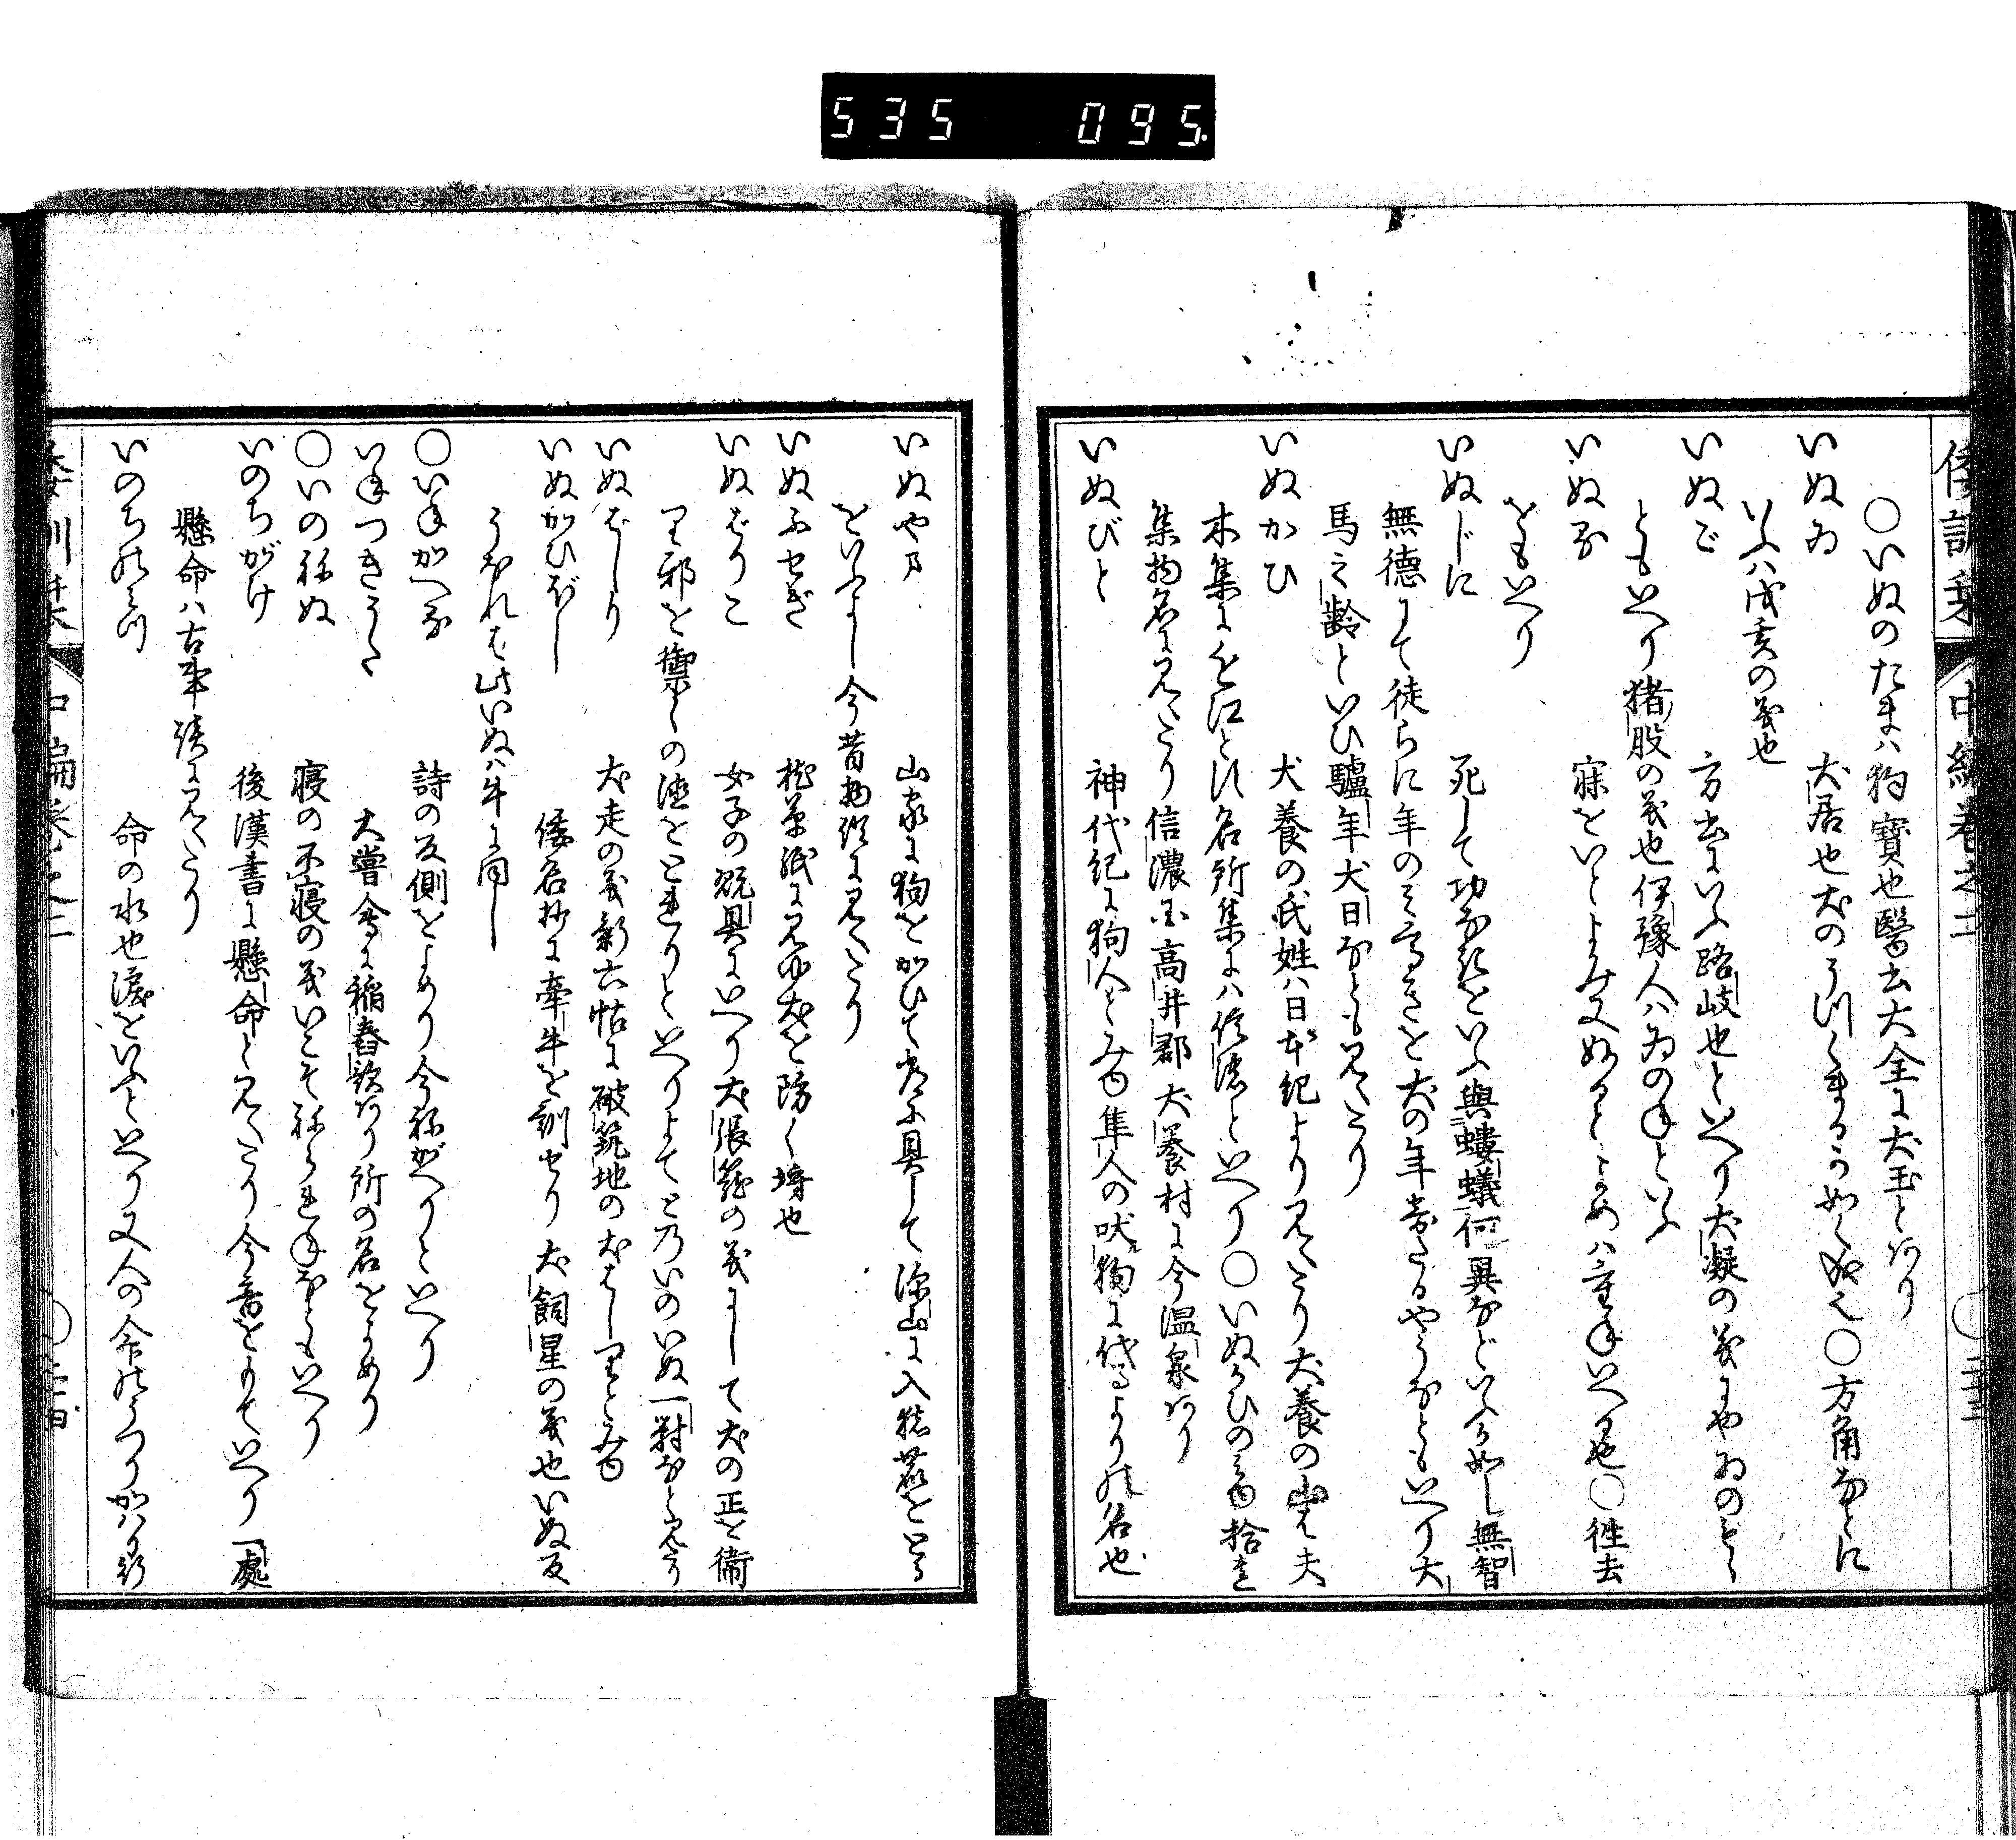 535 095
倭訓栞 中編巻之二
〇いぬのたまハ狗寶也醫云大全に犬玉とあり
いぬゐ 犬居也犬のうづくまるか如くぬえ〇方角なとに
いふハ戌亥の義也
いぬご 方言にいふ路岐也といへり犬凝の義にやゐのこ
ともいへり猪股の義也伊豫人ハゐのねといふ
いぬる 寐をいとよみ又ぬるとよめハ重ねいへる也〇徃去
をもいへり
いぬじに 死して功なきをいふ與螻蟻何異などいふか如し無智
無德にて徒らに年のみ高きを犬の年寄たるやうなともいへり犬
馬之齢といひ驢年犬日なとも見えたり
いぬかひ 犬養の氏姓ハ日本紀より見えたり犬養の山を夫
木集に近江とす名所集にハ信濃といへり〇いぬかひのみゆ拾遺
集物名に見えたり信濃国高井郡犬養村に今温泉あり
いぬびと 神代紀に狗人とみゆ隼人の吠狗に代るよりの名也
いぬやま 山家に狗をかひて常に具して深山に入猪鹿をとる
をいふよし今昔物語に見えたり
いぬふせぎ 枕草紙に見ゆ犬を防く墻也
いぬばりこ 女子の翫具にいへり犬張籠の義にして犬の正を衞
り邪を禦くの徳をとれりといへりよてとのいのいぬ一對なと見えたり
いぬばしり 犬走の義新六帖に破築地の犬はしりとみゆ
いぬかひぼし 倭名抄に牽牛を訓せり犬飼星の義也いぬ反
うなれは此いぬハ牛に同し
〇いねがへる 詩の反側をよめり今ねがへりといへり
いねつきうた 大嘗會に稲舂歌あり所の名をよめり
〇いのねぬ 寝の不寝の義いこそねられねなともいへり
いのちがけ 後漢書に懸命と見えたり今音をもていへり一處
懸命ハ古事談に見えたり
いのちのみづ 命の水也湯をいふといへり又人の命のうつりかハり行